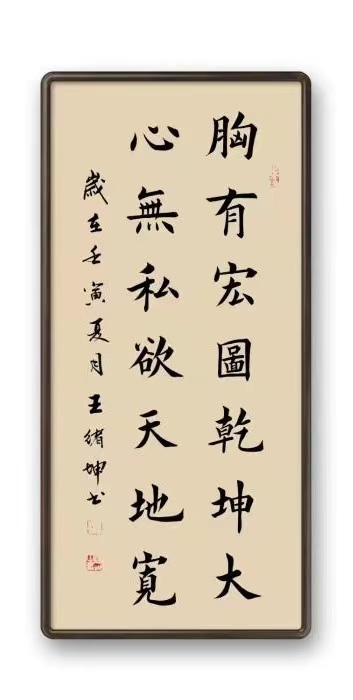 胸有宏圖乾坤大
心無私欲天地寬
歲在壬寅夏月王緒坤书